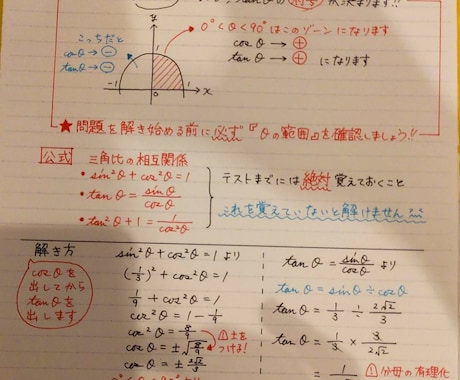 符号
y
こっちだと
cosθ → ⊖
tanθ → ⊖
0°<θ<90°はこのゾーンになります
cosθ → ⊕
tanθ → ⊕ になります
1
-1 0 1 x
★問題を解き始める前に必ず『θの範囲』を確認しましょう!!
公式 三角比の相互関係
• sin²θ + cos²θ = 1
• tanθ = sinθ/cosθ
• tan²θ + 1 = 1/cos²θ
テストまでには絶対覚えておくこと
これを覚えていないと解けません
解き方
cosθを
出してから
tanθを
出します
sin²θ + cos²θ = 1 より
(1/3)² + cos²θ = 1
1/9 + cos²θ = 1
cos²θ = 1 - 1/9
cos²θ = 8/9
cosθ = ±√8/9
cosθ = ±2√2/3
①±を
つける!
tanθ = sinθ/cosθ より
tanθ = sinθ ÷ cosθ
tanθ = 1/3 ÷ 2√2/3
tanθ = 1/3 × 3/2√2
= 1
①分母の有理化